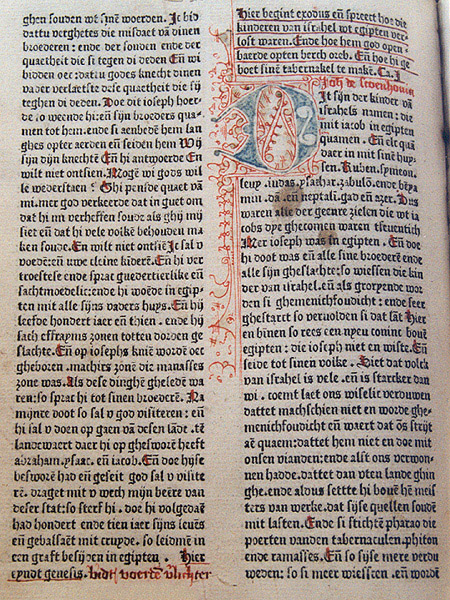 ghen souden wi sinē woerden. Ic bid
dattu verghetes die misdaet vā dinen
broederen: ende der sonden ende der
quaetheit die si tegen di deden Eñ wi
bidden oec: dattu godes knecht dinen
vader verlaetste dese quaetheit die sij
teghen di deden. Doe dit ioseph hoer-
de so weende hi: eñ sijn broeders qua-
men tot hem. ende si aenbedē hem lan
ghes opter aerden eñ seiden hem Wij
sijn dijn knechtē Eñ hi antwoerde En
wilt niet ontsien. Mogē wi gods wil
le wederstaen? Ghi pensde quaet vā
mi. mer god verkeerde dat in guet om
dat hi mi verheffen soude als ghij mij
siet eñ dat hi vele volkē behouden ma
ken soude. En wilt niet ontsiē Ic sal v
voedē: eñ uwe cleine kinderē. Eñ hi ver
troestese ende sprac guedertierlike eñ
sachtmoedelic: ende hi woēde in egip
ten mit alle sijns vaders huys. Eñ hij
leefde hondert iaer eñ thien. ende hij
sach effrayms zonen totten derdē ge
slachte. Eñ op iosephs kniē wordē oec
gheboren. machirs zonē die manasses
zone was. Als dese dinghē gheledē wa
ren: so sprac hi tot sinen broederē. Na
mijnre doot so sal v god visiteren: eñ
hi sal v doen op gaen vā desen lāde. tē
landewaert daer hi op ghesworē heeft
abraham. ysaac. eñ iacob. Eñ doe hijse
besworē had eñ geseit god sal v visite
rē. draget mit v wech mijn beēre van
deser stat: so sterf hi. doe hi volgedaē
had hondert ende tien iaer sijns leuēs
eñ gebalsaēt mit cruyde. so leidmē in
een graft besiden in egipten. Hier
eyndt genesis. bidt voerde
Hier begint exodus eñ spreect hoe die
kinderen van israhel wt egipten ver-
lost waren. Ende hoe hem god open-
baerde opten berch oreb. Eñ hoe hi ge
boet sinē tabernakel te makē. Ca. i
DIt sijn der kinder vā
israhels namen: die
mit iacob in egipten
quamen. Eñ elc quā
daer in mit sinē huy-
sen. Ruben. symeon.
leuy. iudas. ysachar. zabulō. ende bēia
min. dā. eñ neptali. gad eñ azer. Dus
waren alle der geenre zielen die wt ia
cobs dye ghecomen waren tseuentich
Mer ioseph was in egipten. Eñ doe
hi doot was eñ alle sine broederē ende
alle sijn gheslachte: so wiessen die kin
der van israhel. eñ als groyende wor
den si ghemenichfoudicht: ende seer
ghesterct so vervolden si dat lāt Hier
en binen so rees een nyeu coninc bouē
egipten: die ioseph niet en wiste. Eñ
seide tot sinen volke. Siet dat volck
van israhel is vele. eñ is starcker dan
wi. coemt laet ons wiselic verduwen
dattet machschien niet en worde ghe-
menichfoudicht eñ waert dat ōs strijt
aē quaem: dattet hem niet en doe mit
onsen vianden: ende alst ons verwon-
nen hadde. dattet dan vten lande ghin
ghe. ende aldus settte hi bouē hē mei
sters van werke. dat sijse quellen soudē
mit lasten. Ende si stichtē pharao die
poerten vanden tabernaculen. phiton
ende ramasses. Eñ so sijse mere verdu
weden: so si meer wiessen. eñ wordē